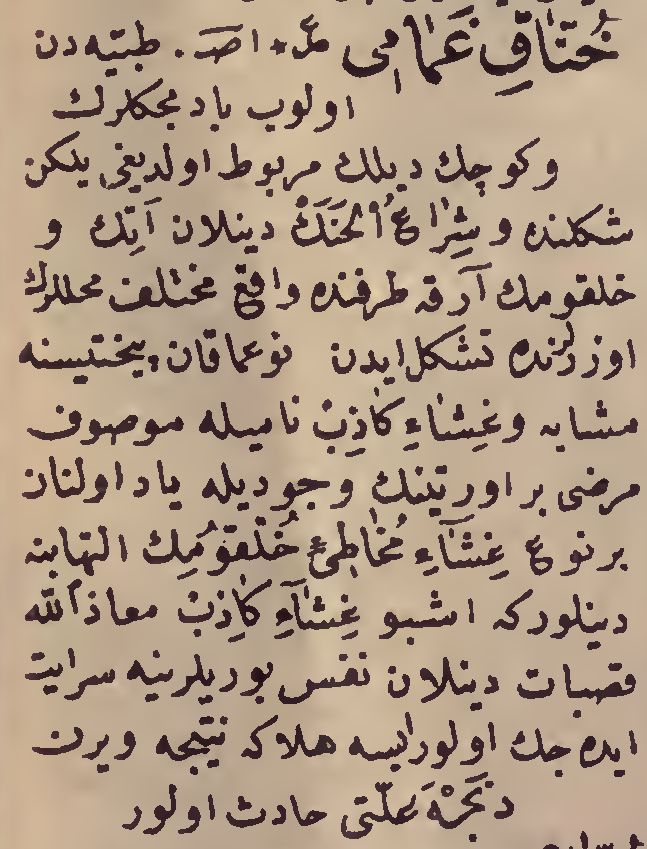 خُنَّاقِ غَمَامِى عر * اصـ . طبيّه دن
اولوب بادمجكلرك
وكوچك ديلك مربوط اولديغى يلكن
شكلنده و شِرَاعُ الْحَنَكْ دينلان اَتِك و
حلقومك آرقه طرفنده واقع مختلف محللرك
اوزرلرنده تشكل ايدن نوعما قان پيختيسنه
مشابه و غِشَاءِ كَاذِبْ ناميله موصوف
مرضى بر اورتينك وجوديله ياد اولنان
بر نوع غِشَآءِ مُخَاطِئِ حُلْقُومُك التهابنه
دينلوركه اشبو غِشَآءِ كَاذِبْ معاذ الله
قصبات دينلان نفس بوريلرينه سرايت
ايده جك اولورايسه هلاكه نتيجه ويرن
دَنجَرَه عِلّتى حادث اولور